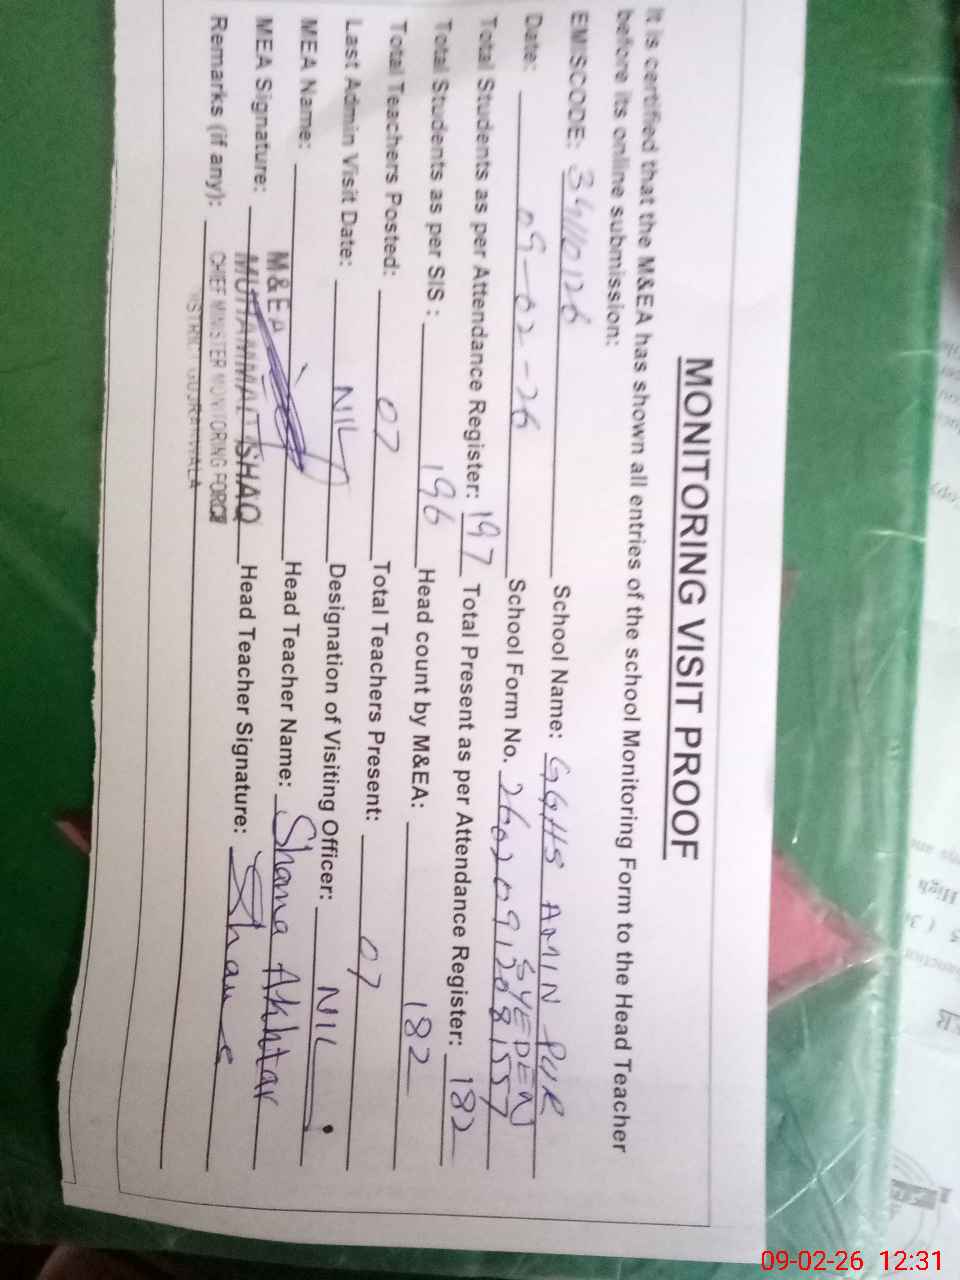 MONITORING VISIT PROOF
It is certified that the M&EA has shown all entries of the school Monitoring Form to the Head Teacher
before its online submission:
EMISCODE: 34110126 School Name: GGHS AMIN PUR
SYEDEN
Date: 09-02-26 School Form No. 26020912081557
Total Students as per Attendance Register: 197 Total Present as per Attendance Register: 182
Total Students as per SIS: 196 Head count by M&EA: 182
Total Teachers Posted: 07 Total Teachers Present: 07
Last Admin Visit Date: NIL Designation of Visiting Officer: NIL
MEA Name: M&EA Head Teacher Name: Shama Akhtar
MEA Signature: MUHAMMAD ISHAQ Head Teacher Signature:
Remarks (if any): CHIEF MINISTER MONITORING FORCE
DISTRICT GUJRANWALA
High
09-02-26 12:31